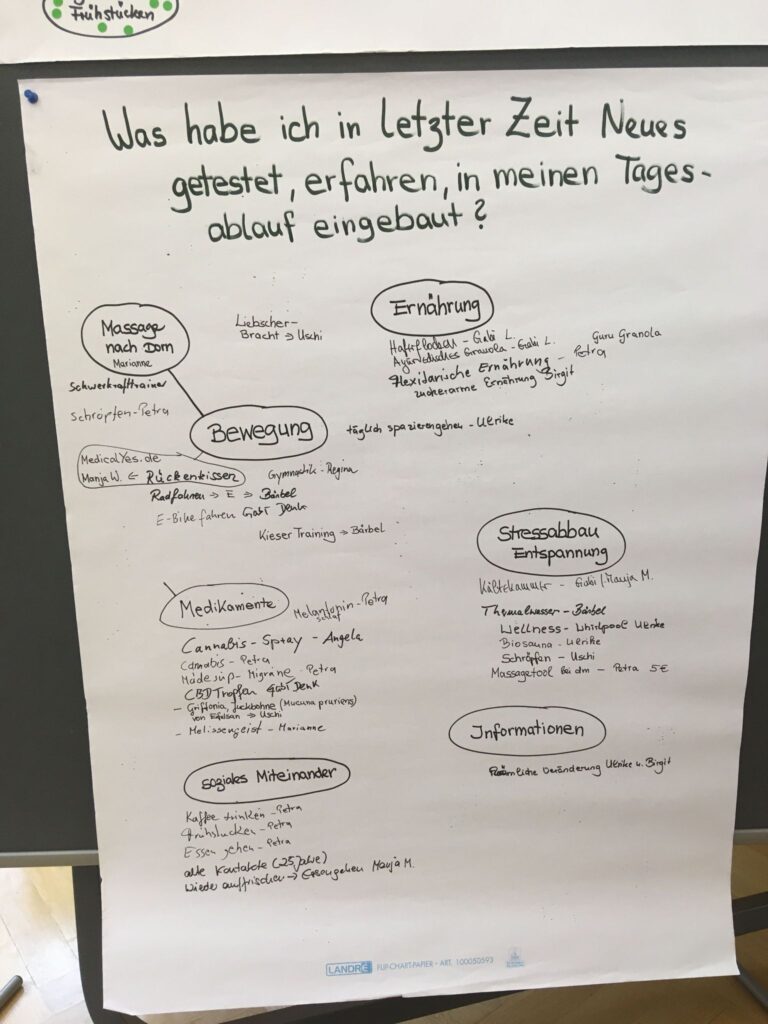 Frühstücken
Was habe ich in letzter Zeit Neues
getestet, erfahren, in meinen Tages-
ablauf eingebaut?
Massage
nach Dorn
Marianne
Schwerkrafttrainer
Schröpfen - Petra
Liebscher-
Bracht → Uschi
Ernährung
Haferflocken - Gabi L.
Guru Granola
Ayurvedisches Granola - Gabi L.
Flexitarische Ernährung - Petra
zuckerarme Ernährung Birgit
Bewegung
täglich spazierengehen - Ulrike
MedicalYes.de
Manja W. ← Rückenkissen
Gymnastik - Regina
Radfahren → E → Bärbel
E-Bike fahren Gabi Denk
Kieser Training → Bärbel
Stressabbau
Entspannung
Kältekammer - Gabi / Manja M.
Thermalwasser - Bärbel
Wellness - Whirlpool Ulrike
Biosauna - Ulrike
Schröpfen - Uschi
Massagetool bei dm - Petra 5€
Medikamente
Melantonin - Petra
schlaf
Cannabis - Spray - Angela
Cannabis - Petra
Mädesüß - Migräne - Petra
CBD Tropfen Gabi Denk
- Griffonia, Juckbohne (Mucuna pruriens)
von → Uschi
- Melissengeist - Marianne
Informationen
Räumliche Veränderung Ulrike u. Birgit
soziales Miteinander
Kaffee trinken - Petra
Frühstücken - Petra
Essen gehen - Petra
alte Kontakte (25 Jahre)
wieder auffrischen → Essengehen Manja M.
LANDRÉ FLIP-CHART-PAPIER - ART. 100050593